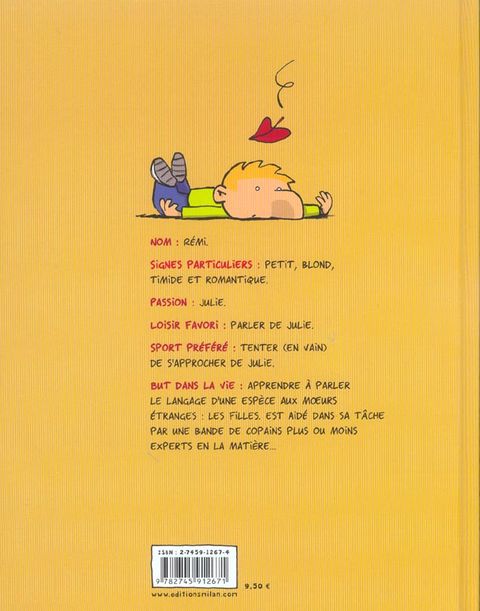 NOM : RÉMI.
SIGNES PARTICULIERS : PETIT, BLOND,
TIMIDE ET ROMANTIQUE.
PASSION : JULIE.
LOISIR FAVORI : PARLER DE JULIE.
SPORT PRÉFÉRÉ : TENTER (EN VAIN)
DE S'APPROCHER DE JULIE.
BUT DANS LA VIE : APPRENDRE À PARLER
LE LANGAGE D'UNE ESPÈCE AUX MŒURS
ÉTRANGES : LES FILLES. EST AIDÉ DANS SA TÂCHE
PAR UNE BANDE DE COPAINS PLUS OU MOINS
EXPERTS EN LA MATIÈRE...
ISBN : 2-7459-1267-4
9 782745 912671
9,50 €
www.editionsmilan.com